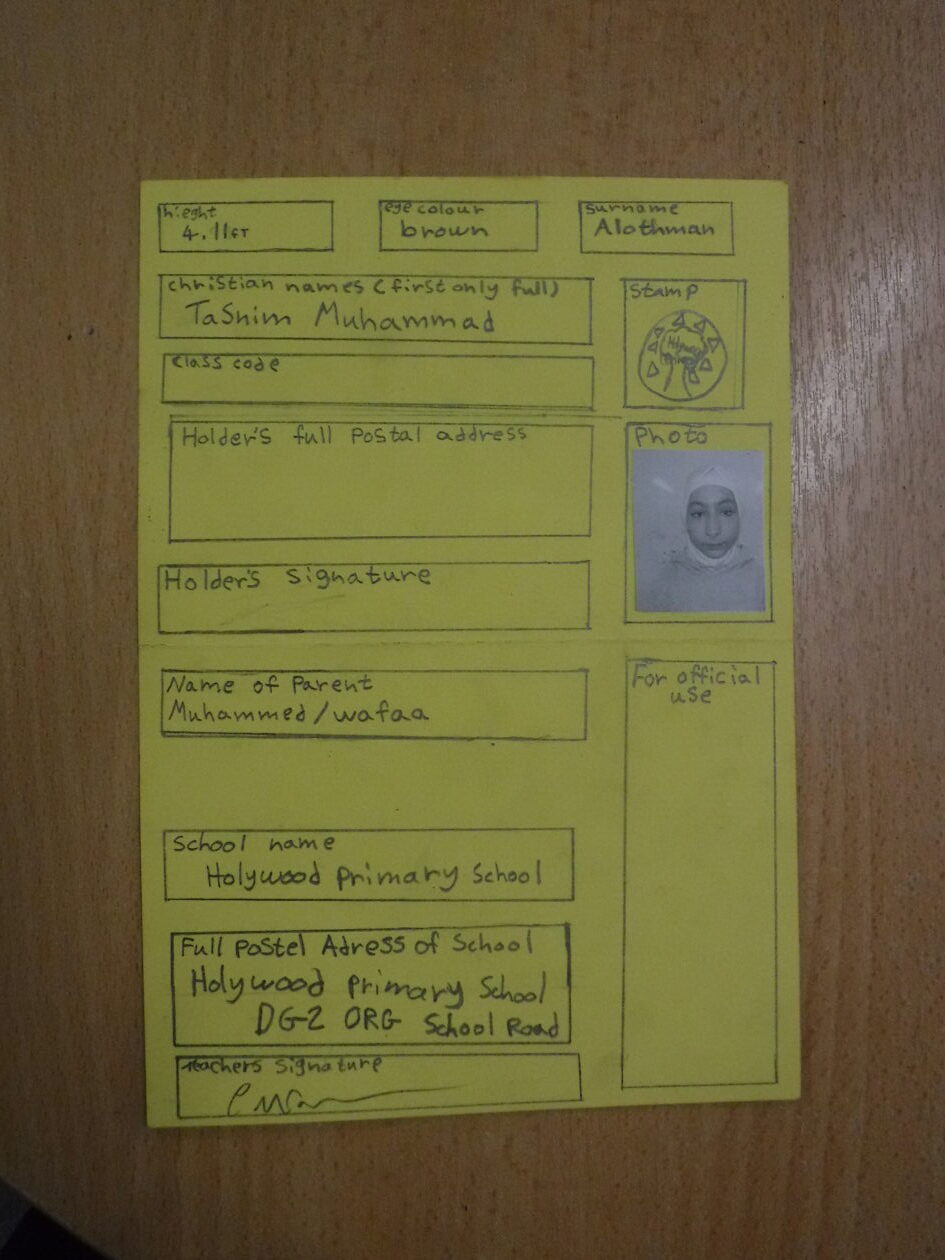 hieght
4.11FT
eye colour
brown
Surname
Alothman
christian names (first only full)
Tasnim Muhammad
Stamp
Class code
Holder's full Postal address
Photo
Holder's Signature
Name of Parent
Muhammed/wafaa
For official
use
School name
Holywood Primary School
Full Postel Adress of School
Holywood primary School
DG2 ORG School Road
teachers signature